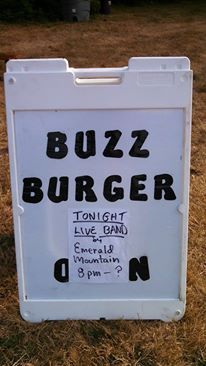 BUZZ
BURGER
TONIGHT
LIVE BAND
by
Emerald
Mountain
9pm - ?
O N